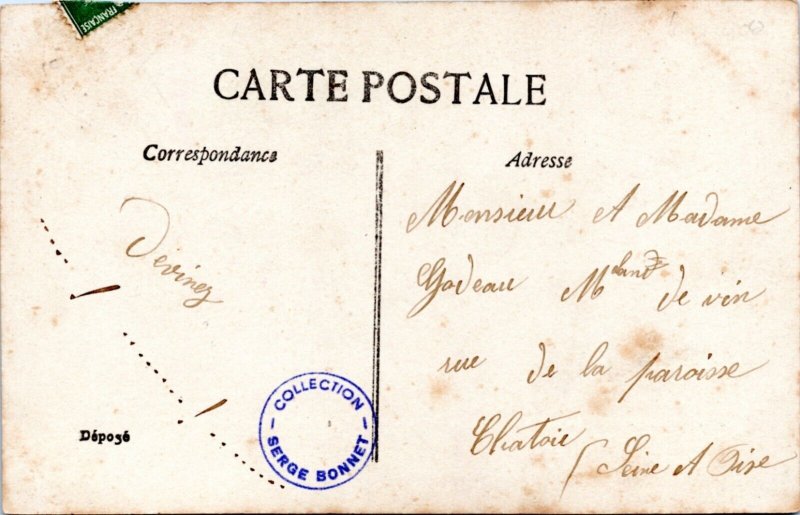 FRANÇAISE
CARTE POSTALE
Correspondance
Devinez
Déposé
COLLECTION
SERGE BONNET
Adresse
Monsieur et Madame
Godeau Mchand de vin
rue de la paroisse
Chatou
(Seine et Oise